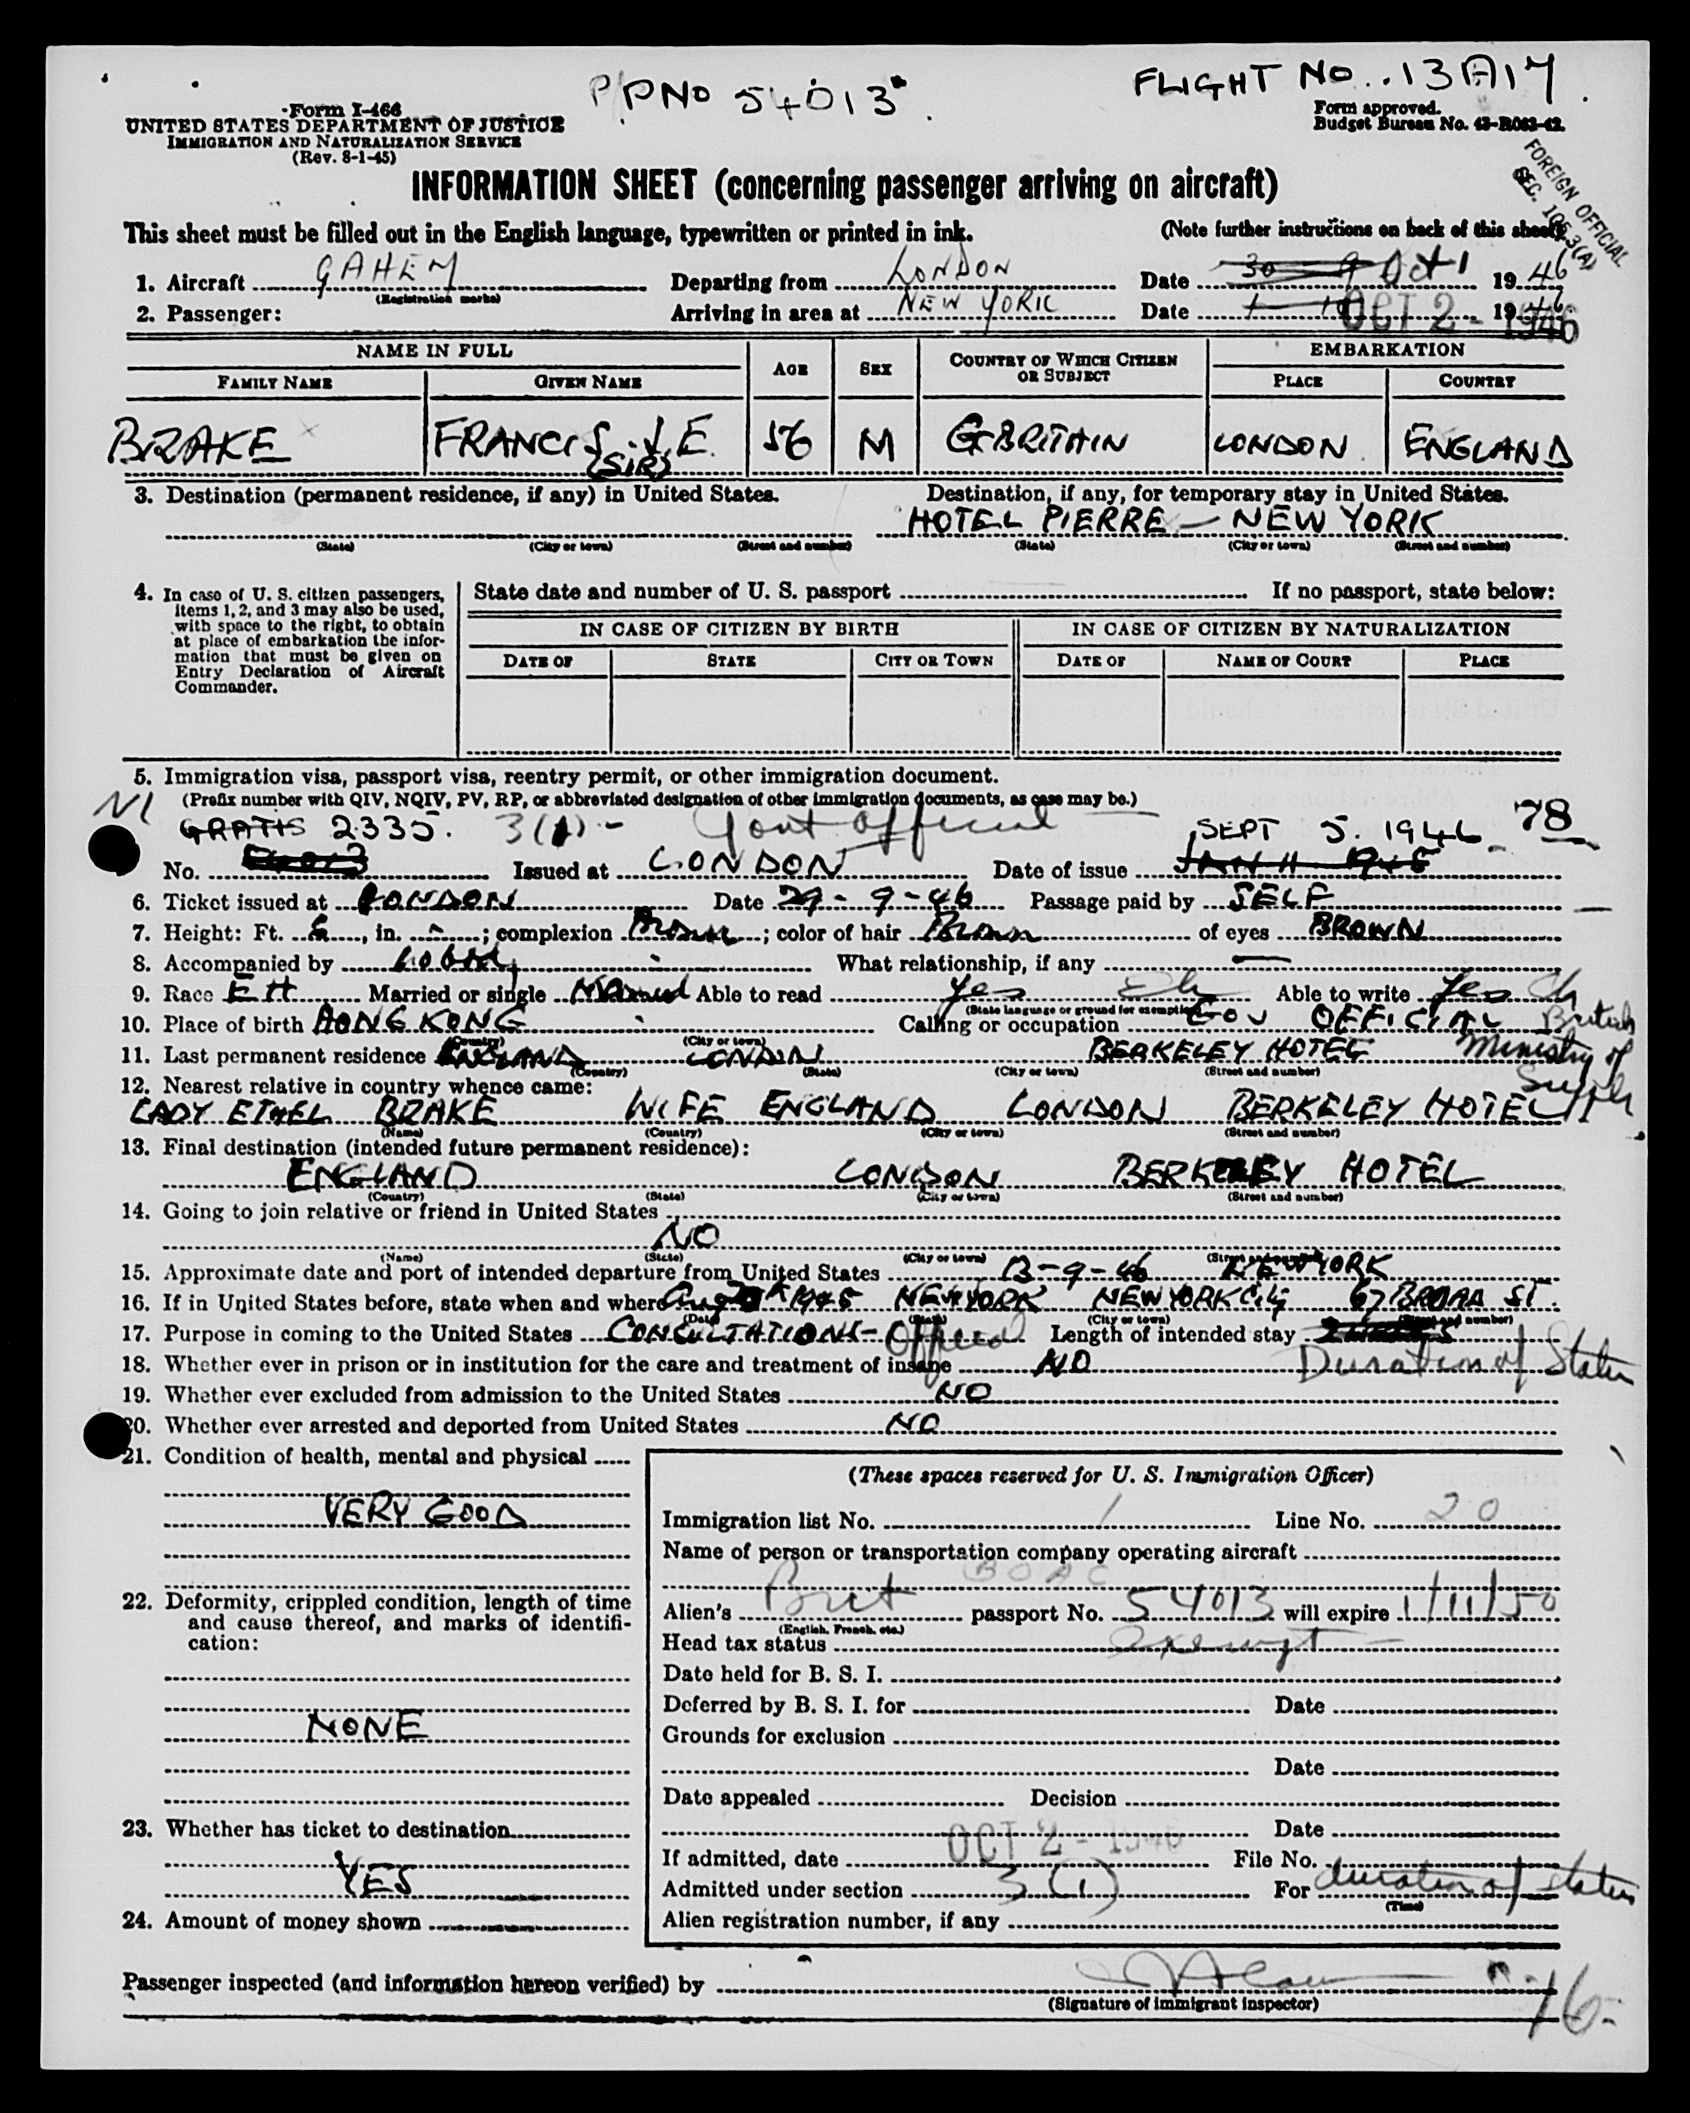 P/PNo 54013
FLIGHT No...13A17
Form I-466
UNITED STATES DEPARTMENT OF JUSTICE
IMMIGRATION AND NATURALIZATION SERVICE
(Rev. 8-1-45)
Form approved.
Budget Bureau No. 43-R063-42.
FOREIGN OFFICIAL
SEC. 105.3(A)
INFORMATION SHEET (concerning passenger arriving on aircraft)
This sheet must be filled out in the English language, typewritten or printed in ink. (Note further instructions on back of this sheet)
1. Aircraft GAHEM Departing from LONDON Date Oct 1 1946
(Registration marks)
2. Passenger: Arriving in area at NEW YORK Date OCT 2 - 1946
NAME IN FULL AGE SEX COUNTRY OF WHICH CITIZEN OR SUBJECT EMBARKATION
FAMILY NAME GIVEN NAME PLACE COUNTRY
BRAKE FRANCIS. J.E. (SIR) 56 M GBRITAIN LONDON ENGLAND
3. Destination (permanent residence, if any) in United States. Destination, if any, for temporary stay in United States.
HOTEL PIERRE — NEW YORK
(State) (City or town) (Street and number) (State) (City or town) (Street and number)
4. In case of U. S. citizen passengers, items 1, 2, and 3 may also be used, with space to the right, to obtain at place of embarkation the information that must be given on Entry Declaration of Aircraft Commander.
State date and number of U. S. passport If no passport, state below:
IN CASE OF CITIZEN BY BIRTH IN CASE OF CITIZEN BY NATURALIZATION
DATE OF STATE CITY OR TOWN DATE OF NAME OF COURT PLACE
5. Immigration visa, passport visa, reentry permit, or other immigration document.
(Prefix number with QIV, NQIV, PV, RP, or abbreviated designation of other immigration documents, as case may be.)
GRATIS 2335. 3(1) - Govt official SEPT 5. 1946 78
No. Issued at LONDON Date of issue
6. Ticket issued at LONDON Date 29-9-46 Passage paid by SELF
7. Height: Ft. 6, in. -; complexion Brown; color of hair Brown of eyes BROWN
8. Accompanied by What relationship, if any —
9. Race EH Married or single Married Able to read Yes Able to write Yes
(State language or ground for exemption)
10. Place of birth HONG KONG Calling or occupation GOV OFFICIAL British
(Country) (City or town)
11. Last permanent residence ENGLAND LONDON BERKELEY HOTEL Ministry of Supply
(Country) (State) (City or town) (Street and number)
12. Nearest relative in country whence came:
LADY ETHEL BRAKE WIFE ENGLAND LONDON BERKELEY HOTEL
(Name) (Country) (City or town) (Street and number)
13. Final destination (intended future permanent residence):
ENGLAND LONDON BERKELEY HOTEL
(Country) (State) (City or town) (Street and number)
14. Going to join relative or friend in United States
NO
(Name) (State) (City or town) (Street and number)
15. Approximate date and port of intended departure from United States 13-9-46 NEW YORK
16. If in United States before, state when and where Aug 1945 NEW YORK NEW YORK City 67 BROAD ST.
(Date) (State) (City or town) (Street and number)
17. Purpose in coming to the United States CONSULTATIONS - Official Length of intended stay
Duration of Status
18. Whether ever in prison or in institution for the care and treatment of insane NO
19. Whether ever excluded from admission to the United States NO
20. Whether ever arrested and deported from United States NO
21. Condition of health, mental and physical
VERY GOOD
22. Deformity, crippled condition, length of time and cause thereof, and marks of identification:
NONE
23. Whether has ticket to destination
YES
24. Amount of money shown
(These spaces reserved for U. S. Immigration Officer)
Immigration list No. 1 Line No. 20
Name of person or transportation company operating aircraft
BOAC
Alien's Brit passport No. 54013 will expire 1/11/50
(English, French, etc.)
Head tax status exempt -
Date held for B. S. I.
Deferred by B. S. I. for Date
Grounds for exclusion
Date
Date appealed Decision
Date
If admitted, date OCT 2 - 1946 File No.
Admitted under section 3(1) For duration of status
(Time)
Alien registration number, if any
Passenger inspected (and information hereon verified) by
(Signature of immigrant inspector)
16-